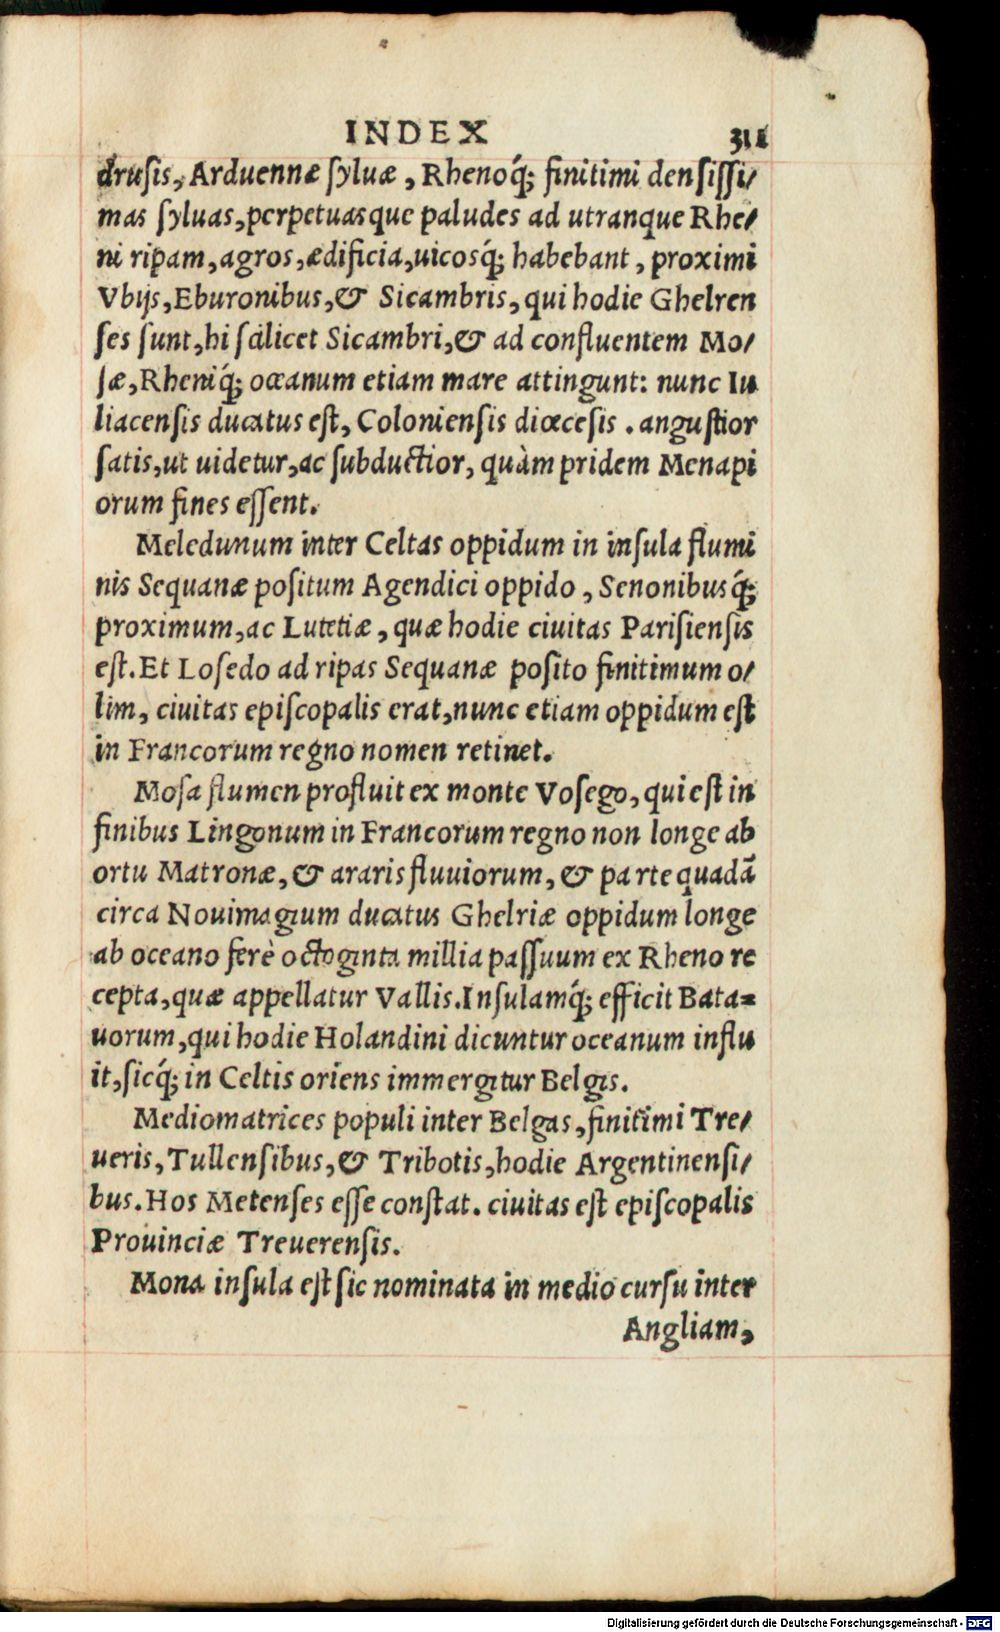 INDEX 311
drusis, Arduennæ syluæ, Rhenoq́; finitimi densissi/
mas syluas, perpetuasque paludes ad utranque Rhe/
ni ripam, agros, ædificia, uicosq́; habebant, proximi
Vbijs, Eburonibus, & Sicambris, qui hodie Ghelren
ses sunt, hi scilicet Sicambri, & ad confluentem Mo/
sæ, Rheniq́; oceanum etiam mare attingunt: nunc Iu
liacensis ducatus est, Coloniensis diœcesis. angustior
satis, ut uidetur, ac subductior, quàm pridem Menapi
orum fines essent.
Meledunum inter Celtas oppidum in insula flumi
nis Sequanæ positum Agendici oppido, Senonibusq́;
proximum, ac Lutetiæ, quæ hodie ciuitas Parisiensis
est. Et Losedo ad ripas Sequanæ posito finitimum o/
lim, ciuitas episcopalis erat, nunc etiam oppidum est
in Francorum regno nomen retinet.
Mosa flumen profluit ex monte Vosego, qui est in
finibus Lingonum in Francorum regno non longe ab
ortu Matronæ, & araris fluuiorum, & parte quadã
circa Nouimagium ducatus Ghelriæ oppidum longe
ab oceano ferè octoginta millia passuum ex Rheno re
cepta, quæ appellatur Vallis. Insulamq́; efficit Bata=
uorum, qui hodie Holandini dicuntur oceanum influ
it, sicq́; in Celtis oriens immergitur Belgis.
Mediomatrices populi inter Belgas, finitimi Tre/
ueris, Tullensibus, & Tribotis, hodie Argentinensi/
bus. Hos Metenses esse constat. ciuitas est episcopalis
Prouinciæ Treuerensis.
Mona insula est sic nominata in medio cursu inter
Angliam,
Digitalisierung gefördert durch die Deutsche Forschungsgemeinschaft - DFG